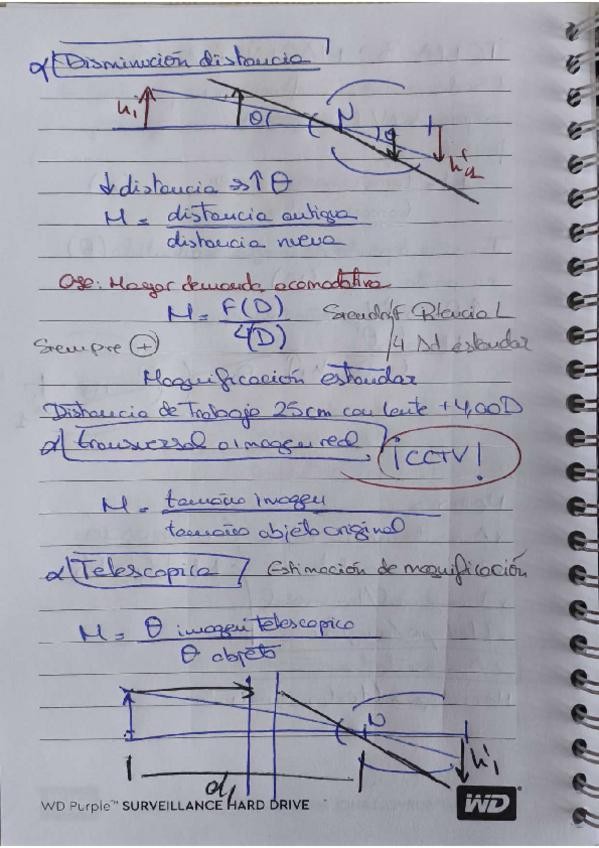 α) Disminución distancia
h₁ θ N θ h'₂
↓ distancia ⇒ ↑ θ
M = distancia antigua
distancia nueva
Ojo: Mayor demanda acomodativa
M = F(D) Siendo F Potencia L
4(D) /4 Dd estandar
Siempre ⊕
Magnificación estandar
Distancia de Trabajo 25cm con lente +4,00D
α) transversal o imagen real ¡CCTV!
M = tamaño imagen
tamaño objeto original
α) Telescopica Estimación de magnificación
M = θ imagen telescopico
θ objeto
N
h'₁
d₁
WD Purple™ SURVEILLANCE HARD DRIVE WD